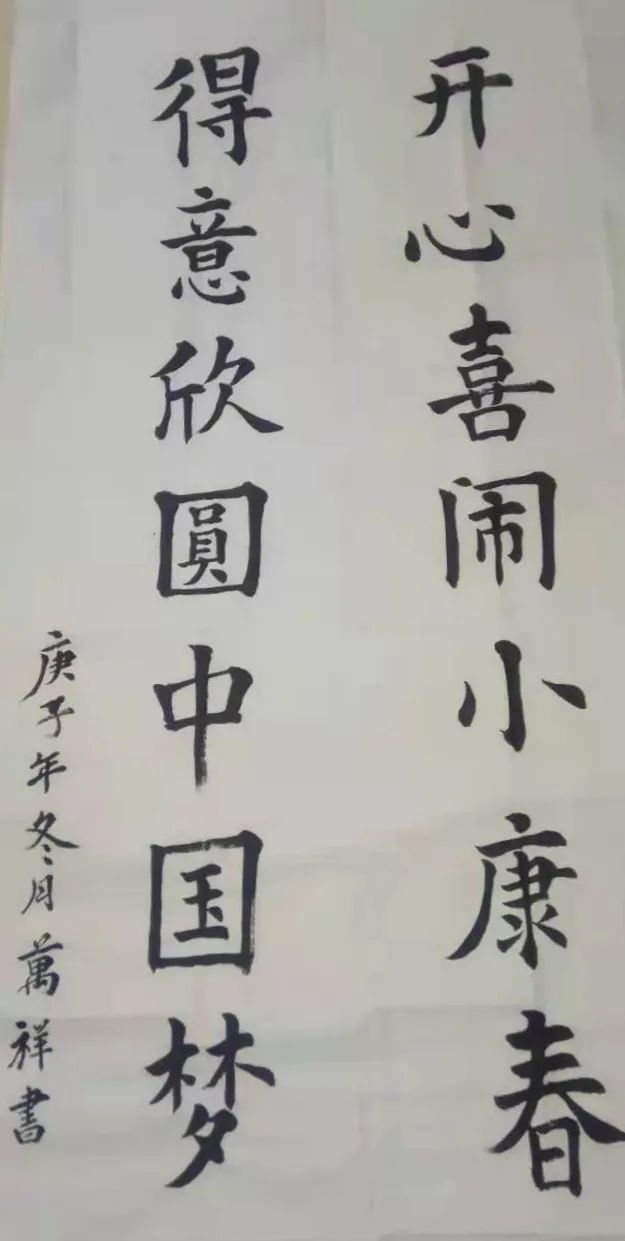 开心喜闹小康春
得意欣圓中国梦
庚子年冬月萬祥書